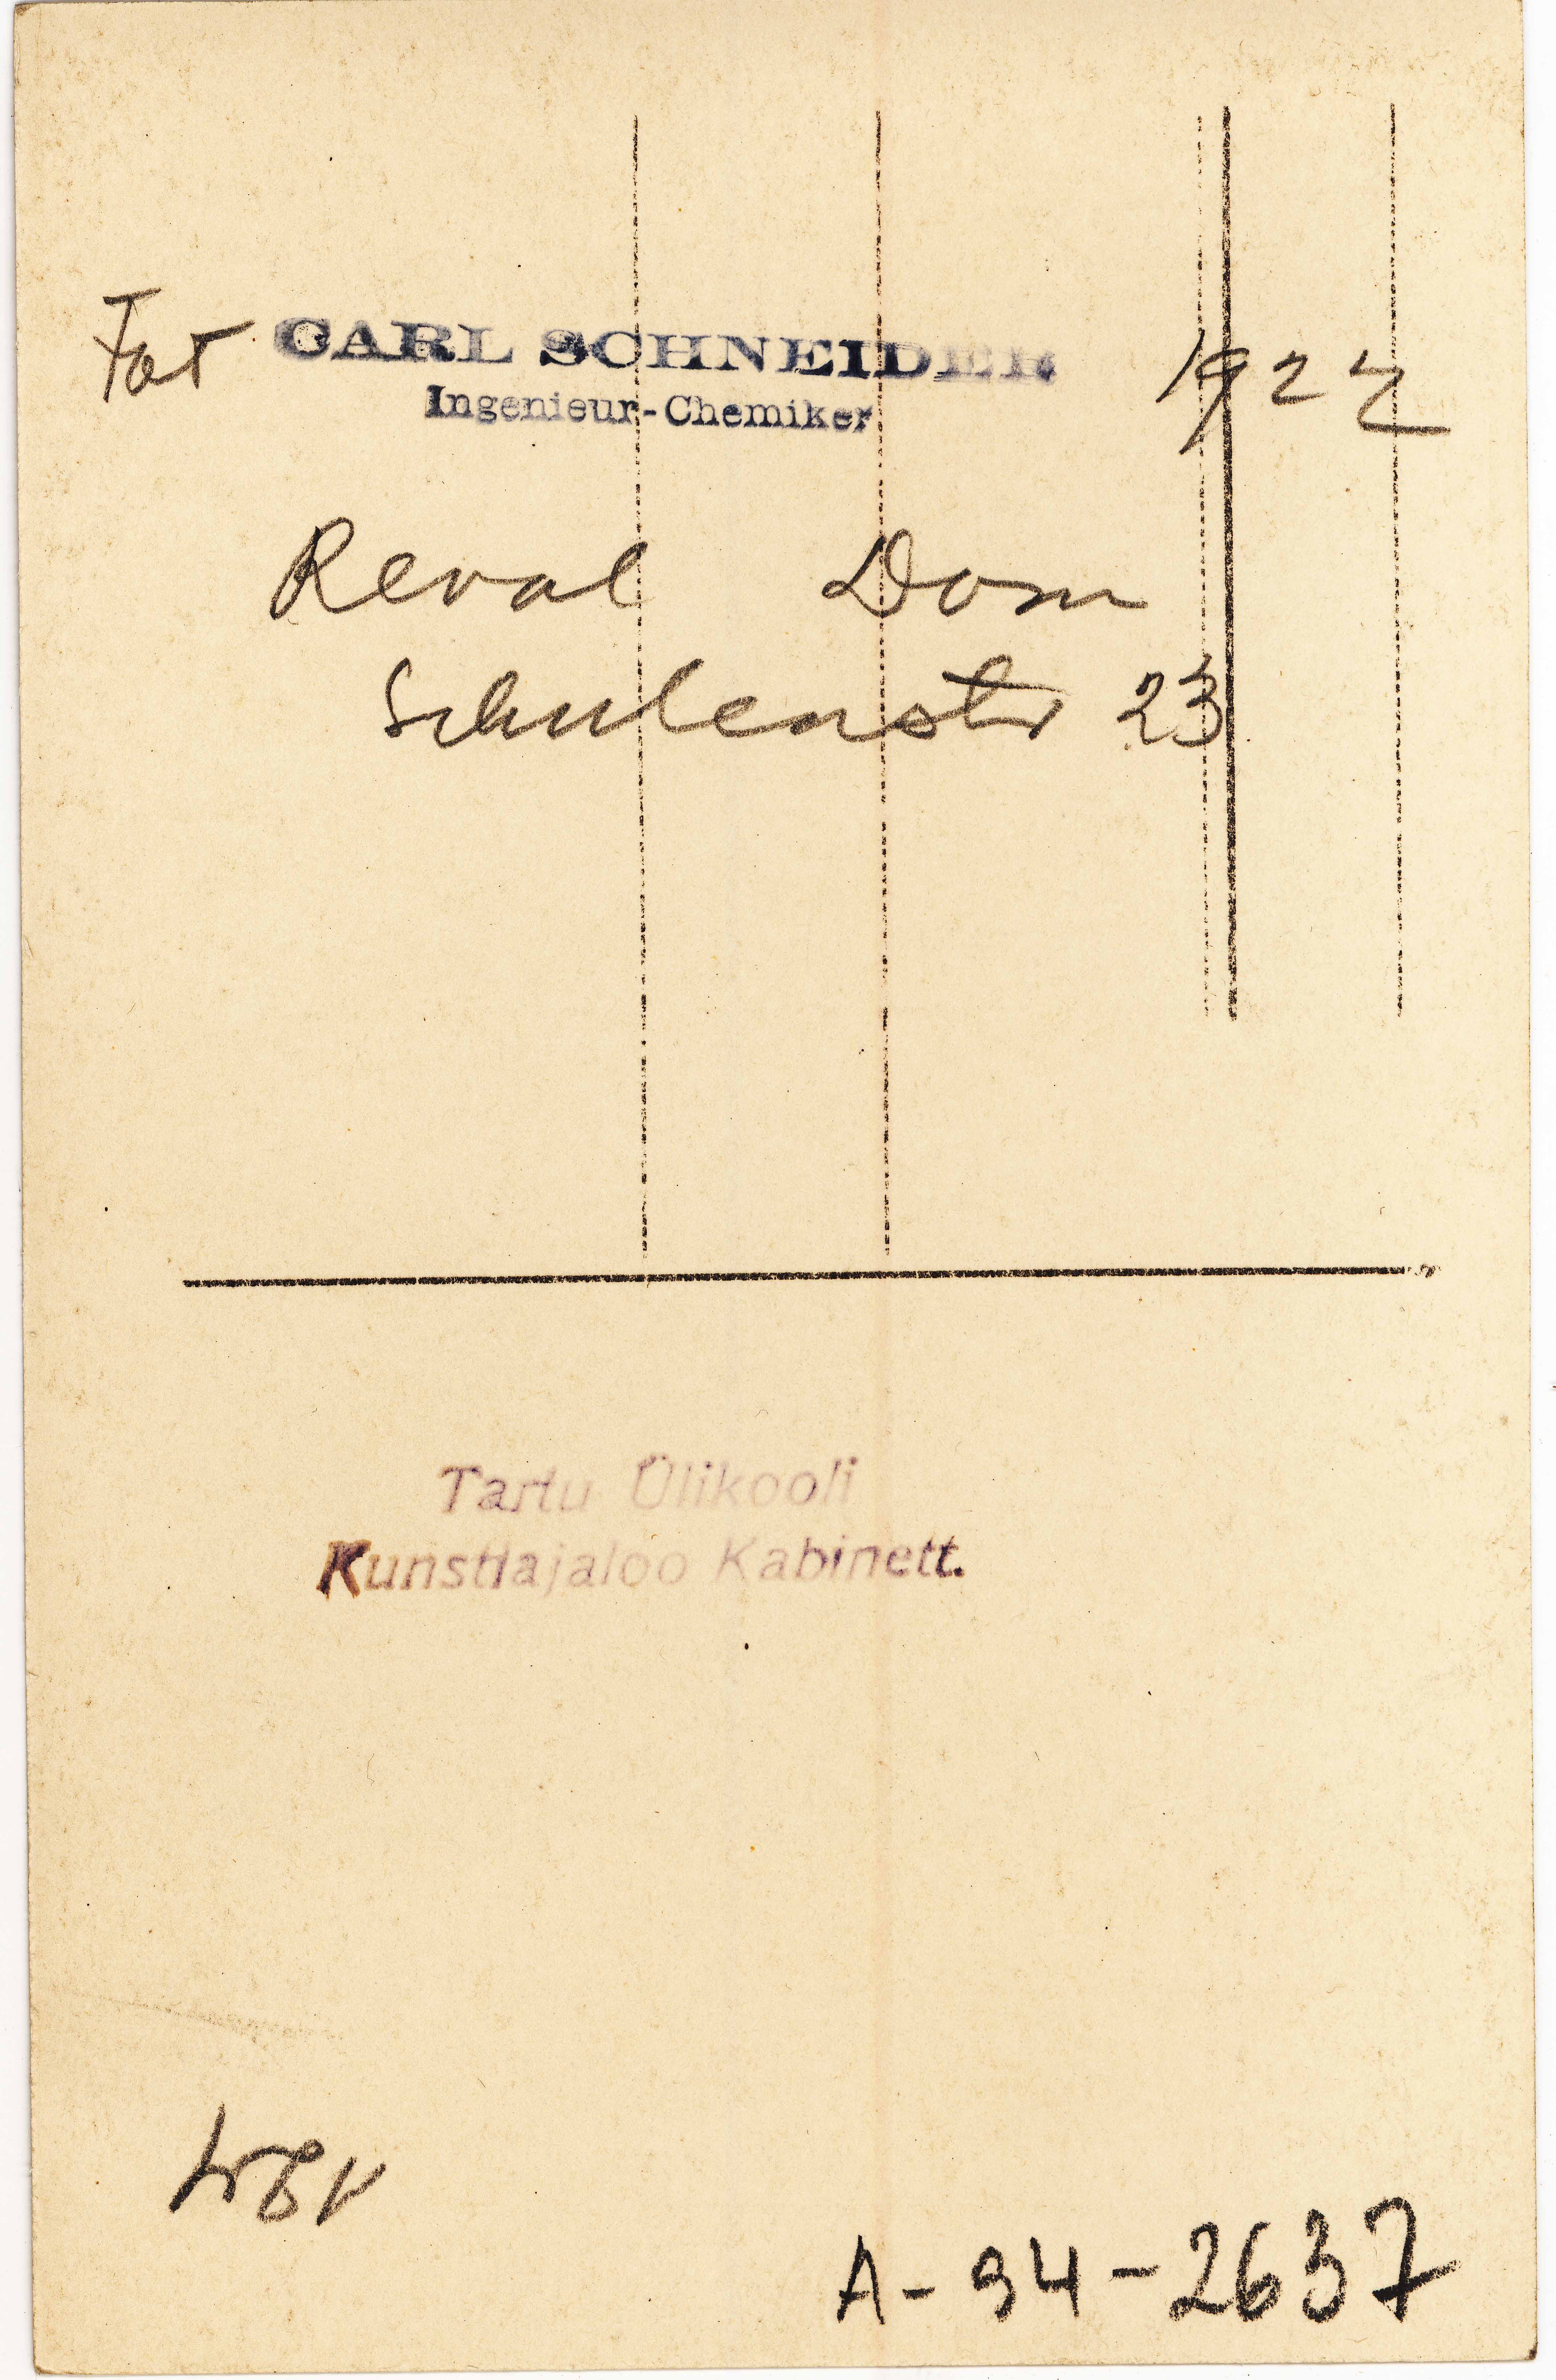 Fot CARL SCHNEIDER 1922
Ingenieur-Chemiker
Reval Dom
Schulenstr 23
Tartu Ülikooli
Kunstiajaloo Kabinett.
A-94-2637